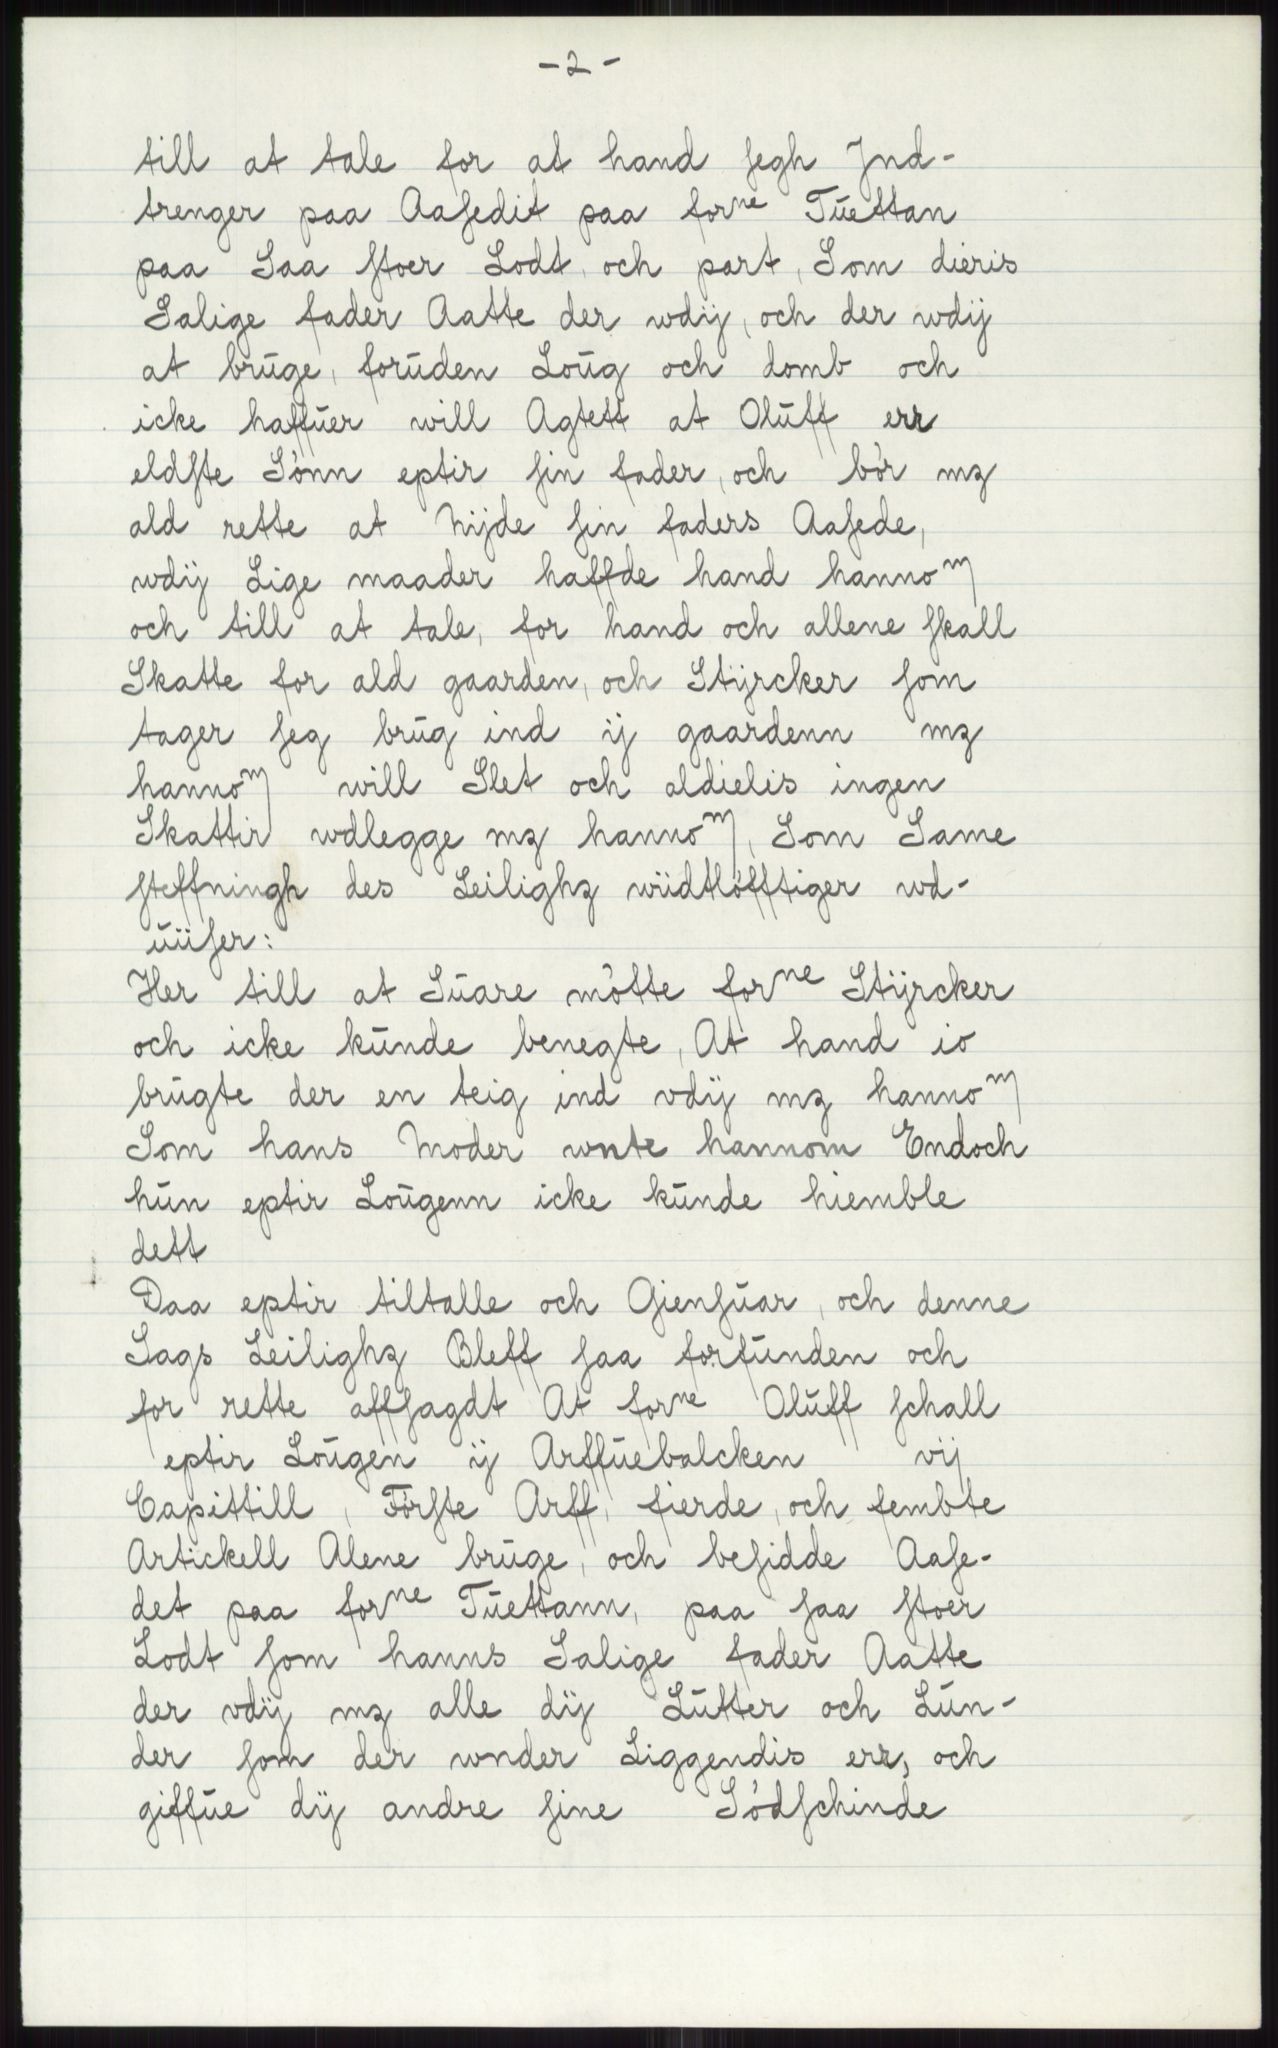 - 2 -
till at tale for at hand ſegh Jnd-
trenger paa Aaſedit paa forne Tūettan
paa Saa ſtoer Lodt, och part, Som dieris
Salige fader Aatte der wdij, och der wdij
at brūge, forūden Loūg och domb och
icke haffūer will Agtett at Olūff err
eldſte Sònn eptir ſin fader, och bòr mz
ald rette at Nijde ſin faders Aaſede,
wdij Lige maader haffde hand hannom
och till at tale, for hand och allene ſkall
Skatte for ald gaarden, och Stijrcker ſom
tager ſeg brūg ind ij gaardenn mz
hannom will Slet och aldielis ingen
Skattir wdlegge mz hannom, Som Same
ſteffningh des Leilighz wiidtlòfftiger wd-
ūiiſer:
Her till at Sūare mòtte forne Stijrcker
och icke kūnde benegte, At hand io
brūgte der en teig ind vdij mz hannom
Som hans Moder wnte hannom Endoch
hūn eptir Loūgenn icke kūnde hiemble
dett
Daa eptir tiltalle och Gienſūar, och denne
Sags Leilighz Bleff ſaa forfūnden och
for rette affſagdt At forne Olūff ſchall
eptir Loūgen ij Arffūebalcken vij
Capittill, Fòrſte Arff, fierde, och fembte
Artickell Alene brūge, och beſidde Aaſe-
det paa forne Tūettann, paa ſaa ſtoer
Lodt ſom hanns Salige fader Aatte
der vdij mz alle dij Lūtter och Lūn-
der ſom der wnder Liggendis err, och
giffūe dij andre ſine Sòdſchinde